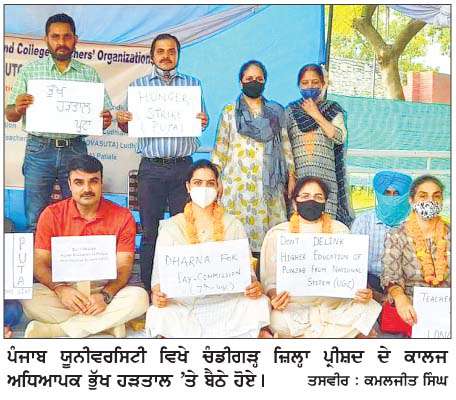 nd College Teachers' Organizations
Ludh
OVASUTA) Ludhi
Patiala
ਭੁੱਖ
ਹੜਤਾਲ
ਪੂਟਾ
HUNGER
STRIKE
(PUPA)
PUTA
DHARNA FOR
PAY-COMMISSION
7th-UGC
DON'T DELINK
HIGHER EDUCATION OF
PUNJAB FROM NATIONAL
SYSTEM (UGC)
TEACHER
ਪੰਜਾਬ ਯੂਨੀਵਰਸਿਟੀ ਵਿਖੇ ਚੰਡੀਗੜ੍ਹ ਜ਼ਿਲ੍ਹਾ ਪ੍ਰੀਸ਼ਦ ਦੇ ਕਾਲਜ
ਅਧਿਆਪਕ ਭੁੱਖ ਹੜਤਾਲ 'ਤੇ ਬੈਠੇ ਹੋਏ। ਤਸਵੀਰ : ਕਮਲਜੀਤ ਸਿੰਘ